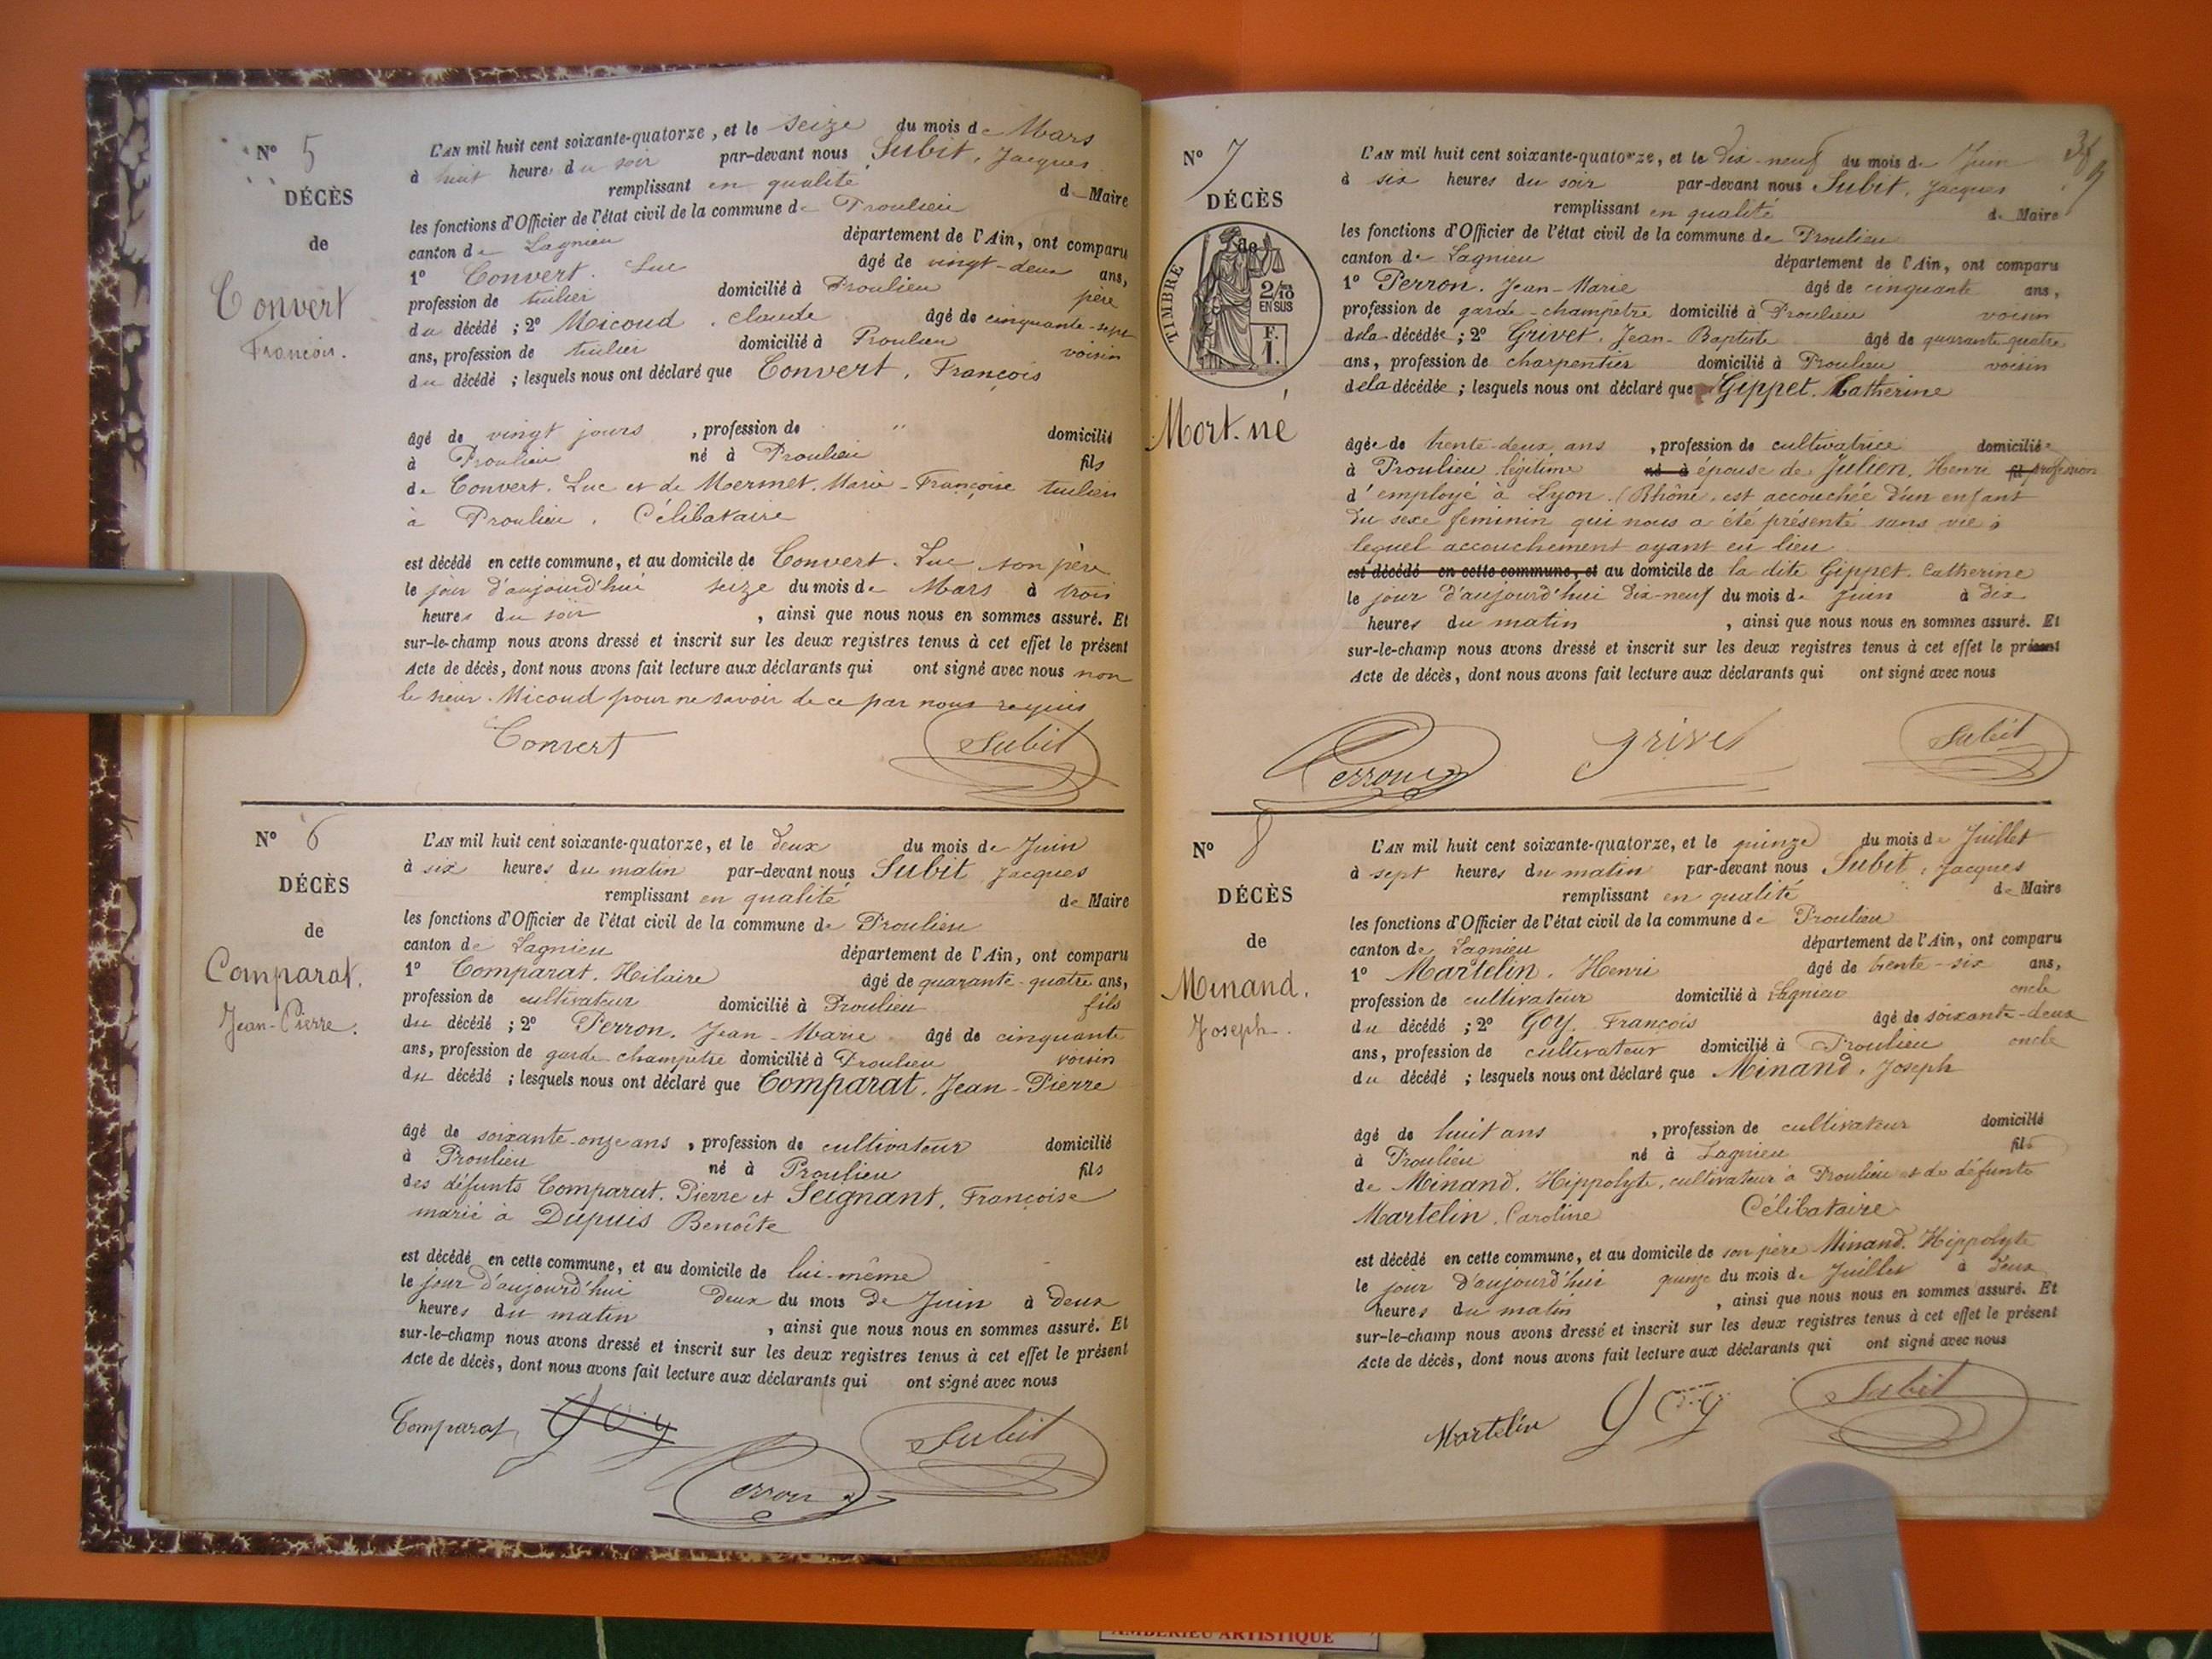 N° 5
DÉCÈS
de
Convert
François.
L'AN mil huit cent soixante-quatorze, et le seize du mois de Mars
à huit heures du soir par-devant nous Subit, Jacques
remplissant en qualité de Maire
les fonctions d'Officier de l'état civil de la commune de Proulieu
canton de Lagnieu département de l'Ain, ont comparu
1° Convert. Luc âgé de vingt-deux ans,
profession de tuilier domicilié à Proulieu père
du décédé ; 2° Micoud, claude âgé de cinquante-sept
ans, profession de tuilier domicilié à Proulieu voisin
du décédé ; lesquels nous ont déclaré que Convert, François
âgé de vingt jours , profession de " domicilié
à Proulieu né à Proulieu fils
de Convert. Luc et de Mermet. Marie-Françoise tuiliers
à Proulieu. Célibataire
est décédé en cette commune, et au domicile de Convert. Luc son père
le jour d'aujourd'hui seize du mois de Mars à trois
heures du soir , ainsi que nous nous en sommes assuré. Et
sur-le-champ nous avons dressé et inscrit sur les deux registres tenus à cet effet le présent
Acte de décès, dont nous avons fait lecture aux déclarants qui ont signé avec nous non
le sieur Micoud pour ne savoir de ce par nous requis
Convert Subit
N° 6
DÉCÈS
de
Comparat.
Jean-Pierre.
L'AN mil huit cent soixante-quatorze, et le deux du mois de Juin
à six heures du matin par-devant nous Subit Jacques
remplissant en qualité de Maire
les fonctions d'Officier de l'état civil de la commune de Proulieu
canton de Lagnieu département de l'Ain, ont comparu
1° Comparat. Hilaire âgé de quarante-quatre ans,
profession de cultivateur domicilié à Proulieu fils
du décédé ; 2° Perron. Jean-Marie âgé de cinquante
ans, profession de garde-champêtre domicilié à Proulieu voisin
du décédé ; lesquels nous ont déclaré que Comparat, Jean-Pierre
âgé de soixante-onze ans , profession de cultivateur domicilié
à Proulieu né à Proulieu fils
des défunts Comparat. Pierre et Seignant, Françoise
marié à Dupuis Benoîte
est décédé en cette commune, et au domicile de lui-même
le jour d'aujourd'hui deux du mois de Juin à deux
heures du matin , ainsi que nous nous en sommes assuré. Et
sur-le-champ nous avons dressé et inscrit sur les deux registres tenus à cet effet le présent
Acte de décès, dont nous avons fait lecture aux déclarants qui ont signé avec nous
Comparat Goy Perron Subit
N° 7
DÉCÈS
de
TIMBRE
2/10
EN SUS
F.
1.
Mort-né
L'AN mil huit cent soixante-quatorze, et le dix-neuf du mois de Juin
à six heures du soir par-devant nous Subit, Jacques
remplissant en qualité de Maire
les fonctions d'Officier de l'état civil de la commune de Proulieu
canton de Lagnieu département de l'Ain, ont comparu
1° Perron. Jean-Marie âgé de cinquante ans,
profession de garde-champêtre domicilié à Proulieu voisin
de la décédée ; 2° Grivet, Jean-Baptiste âgé de quarante-quatre
ans, profession de charpentier domicilié à Proulieu voisin
de la décédée ; lesquels nous ont déclaré que Gippet. Catherine
âgée de trente-deux ans , profession de cultivatrice domiciliée
à Proulieu légitime né à épouse de Julien. Henri fils profession
d'employé à Lyon (Rhône, est accouchée d'un enfant
du sexe feminin qui nous a été présenté sans vie ;
lequel accouchement ayant eu lieu
est décédé en cette commune, et au domicile de la dite Gippet. Catherine
le jour d'aujourd'hui dix-neuf du mois de Juin à dix
heures du matin , ainsi que nous nous en sommes assuré. Et
sur-le-champ nous avons dressé et inscrit sur les deux registres tenus à cet effet le présent
Acte de décès, dont nous avons fait lecture aux déclarants qui ont signé avec nous
Perron grivet Subit
N° 8
DÉCÈS
de
Minand.
Joseph.
L'AN mil huit cent soixante-quatorze, et le quinze du mois de Juillet
à sept heures du matin par-devant nous Subit, Jacques
remplissant en qualité de Maire
les fonctions d'Officier de l'état civil de la commune de Proulieu
canton de Lagnieu département de l'Ain, ont comparu
1° Martelin. Henri âgé de trente-six ans,
profession de cultivateur domicilié à Lagnieu oncle
du décédé ; 2° Goy. François âgé de soixante-deux
ans, profession de cultivateur domicilié à Proulieu oncle
du décédé ; lesquels nous ont déclaré que Minand, Joseph
âgé de huit ans , profession de cultivateur domicilié
à Proulieu né à Lagnieu fils
de Minand. Hippolyte, cultivateur à Proulieu et de défunte
Martelin. Caroline Célibataire
est décédé en cette commune, et au domicile de son père Minand. Hippolyte
le jour d'aujourd'hui quinze du mois de Juillet à deux
heures du matin , ainsi que nous nous en sommes assuré. Et
sur-le-champ nous avons dressé et inscrit sur les deux registres tenus à cet effet le présent
Acte de décès, dont nous avons fait lecture aux déclarants qui ont signé avec nous
Martelin Goy Subit
AMBERIEU ARTISTIQUE